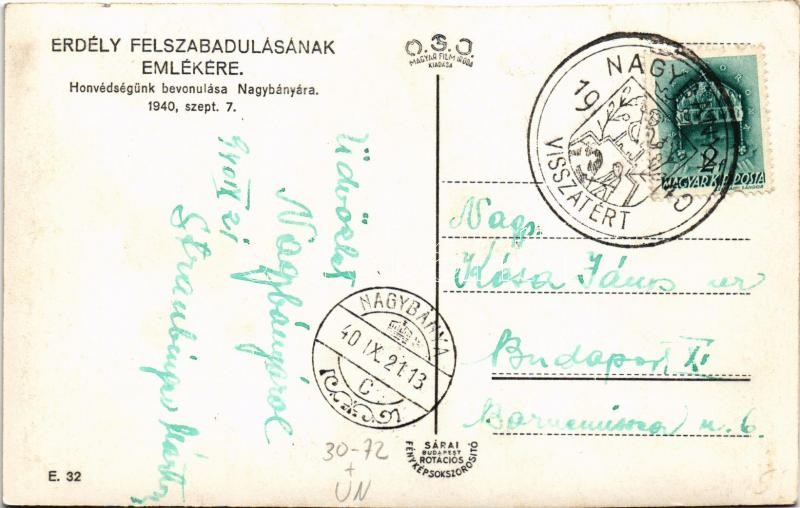 ERDÉLY FELSZABADULÁSÁNAK
EMLÉKÉRE.
Honvédségünk bevonulása Nagybányára.
1940, szept. 7.
O.S.O.
MAGYAR FILM IRODA
KIADÁSA
NAGYBÁNYA
19 40
VISSZATÉRT
MAGYAR KIR. POSTA
Üdvözlet
Nagybányáról
940 IX 21
Nagys.
Kósa János úr
Budapest XI.
u. 6.
NAGYBÁNYA
40 IX. 21. 13
C
SÁRAI
BUDAPEST
ROTÁCIÓS
FÉNYKÉPSOKSZOROSÍTÓ
30-72
+
UN
E. 32